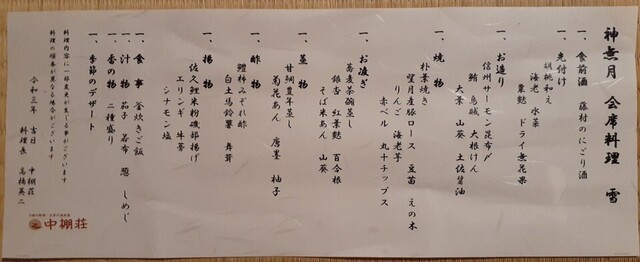 神無月 会席料理 雪
一、食前酒 藤村のにごり酒
一、先付け
胡桃和え
海老 水菜
粟麩 ドライ無花果
一、お造り
信州サーモン昆布〆
鮪 烏賊 大根けん
大葉 山葵 土佐醤油
一、焼物
朴葉焼き
望月産豚ロース 豆苗 えの木
りんご 海老芋
赤ベル 丸十チップス
一、お凌ぎ
蕎麦茶碗蒸し
銀杏 紅葉麩 百合根
そば米あん 山葵
一、蒸物
甘鯛豊年蒸し
菊花あん 唐墨 柚子
一、酢物
鰹柿みぞれ酢
白土馬鈴薯 舞茸
一、揚物
佐久鯉米粉磯部揚げ
エリンギ 牛蒡
シナモン塩
一、食事 釜炊きご飯
一、汁物 茄子 若布 葱 しめじ
一、香の物 二種盛り
一、季節のデザート
料理内容に一部変更が生じる事がございます
料理の順番が異なる場合がございます
令和三年 吉日 中棚荘
料理長 高橋英二
中棚荘